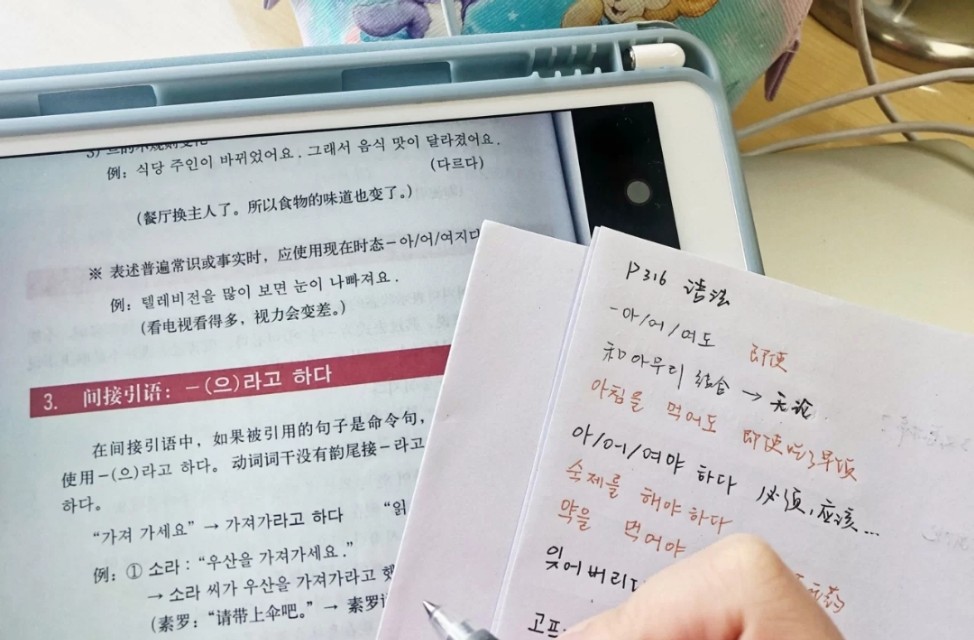 例: 식당 주인이 바뀌었어요. 그래서 음식 맛이 달라졌어요.
(다르다)
(餐厅换主人了。所以食物的味道也变了。)
※ 表述普遍常识或事实时，应使用现在时态－아/어/여지다
例: 텔레비전을 많이 보면 눈이 나빠져요.
(看电视看得多，视力会变差。)
3. 间接引语: －(으)라고 하다
在间接引语中，如果被引用的句子是命令句，
使用－(으)라고 하다。动词词干没有韵尾接－라고
하다。
“가져 가세요” → 가져가라고 하다 “읽
例: ① 소라 : “우산을 가져가세요.”
→ 소라 씨가 우산을 가져가라고 했
(素罗: “请带上伞吧。” → 素罗
P316 语法
-아/어/여도 即使
和 아무리 结合 → 无论
아침을 먹어도 即使吃了早饭
아/어/여야 하다 必须, 应该...
숙제를 해야 하다
약을 먹어야
잊어버리다
고프